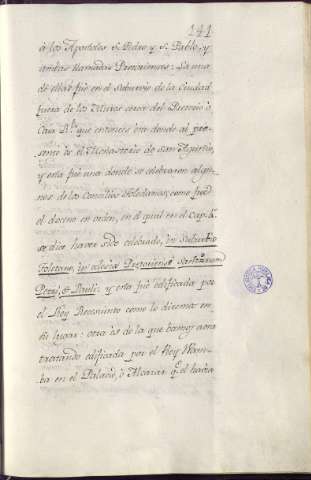 141
á los Apostoles S. Pedro y S. Pablo, y
ambas llamadas Pretorienses: La una
de ellas fué en el Suburvio de la Ciudad
fuera de los Muros cerca del Pretorio ó
Casa Rl. que entonces era donde al pre-
sente es el Monasterio de San Agustin,
y esta fué una donde se celebraron algu-
nos de los Concilios Toledanos, como fué
el doceno en orden, en el qual en el Cap. 4.
se dice haver sido celebrado, in Suburbio
Toletano, in eclesia Pretoriense Sanctorum
Petri, et Pauli: y esta fué edificada por
el Rey Recesvinto como lo diremos en
su lugar: otra es de la que bamos aora
tratando edificada por el Rey Wam-
ba en el Palacio, ó Alcazar q. el havia